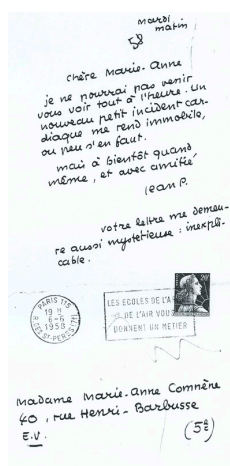 mardi
matin
58
Chère Marie-Anne
je ne pourrai pas venir
vous voir tout à l'heure. Un
nouveau petit incident car-
diaque me rend immobile,
ou peu s'en faut.
mais à bientôt quand
même, et avec amitié,
Jean P.
votre lettre me demeu-
re aussi mystérieuse : inexpli-
cable.
PARIS 115
19 H
6-6
1958
R. DES STS-PERES (7E)
LES ECOLES DE L'A
DE L'AIR VOUS
DONNENT UN METIER
20F
Madame Marie-Anne Comnène
40, rue Henri-Barbusse
E.V. (5e)